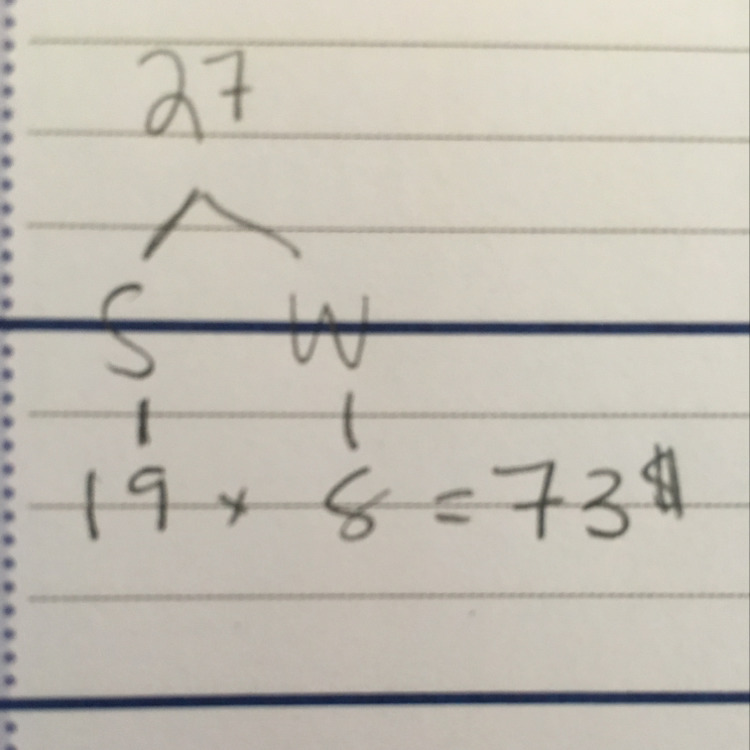 27
S W
19 × 8 = 73$